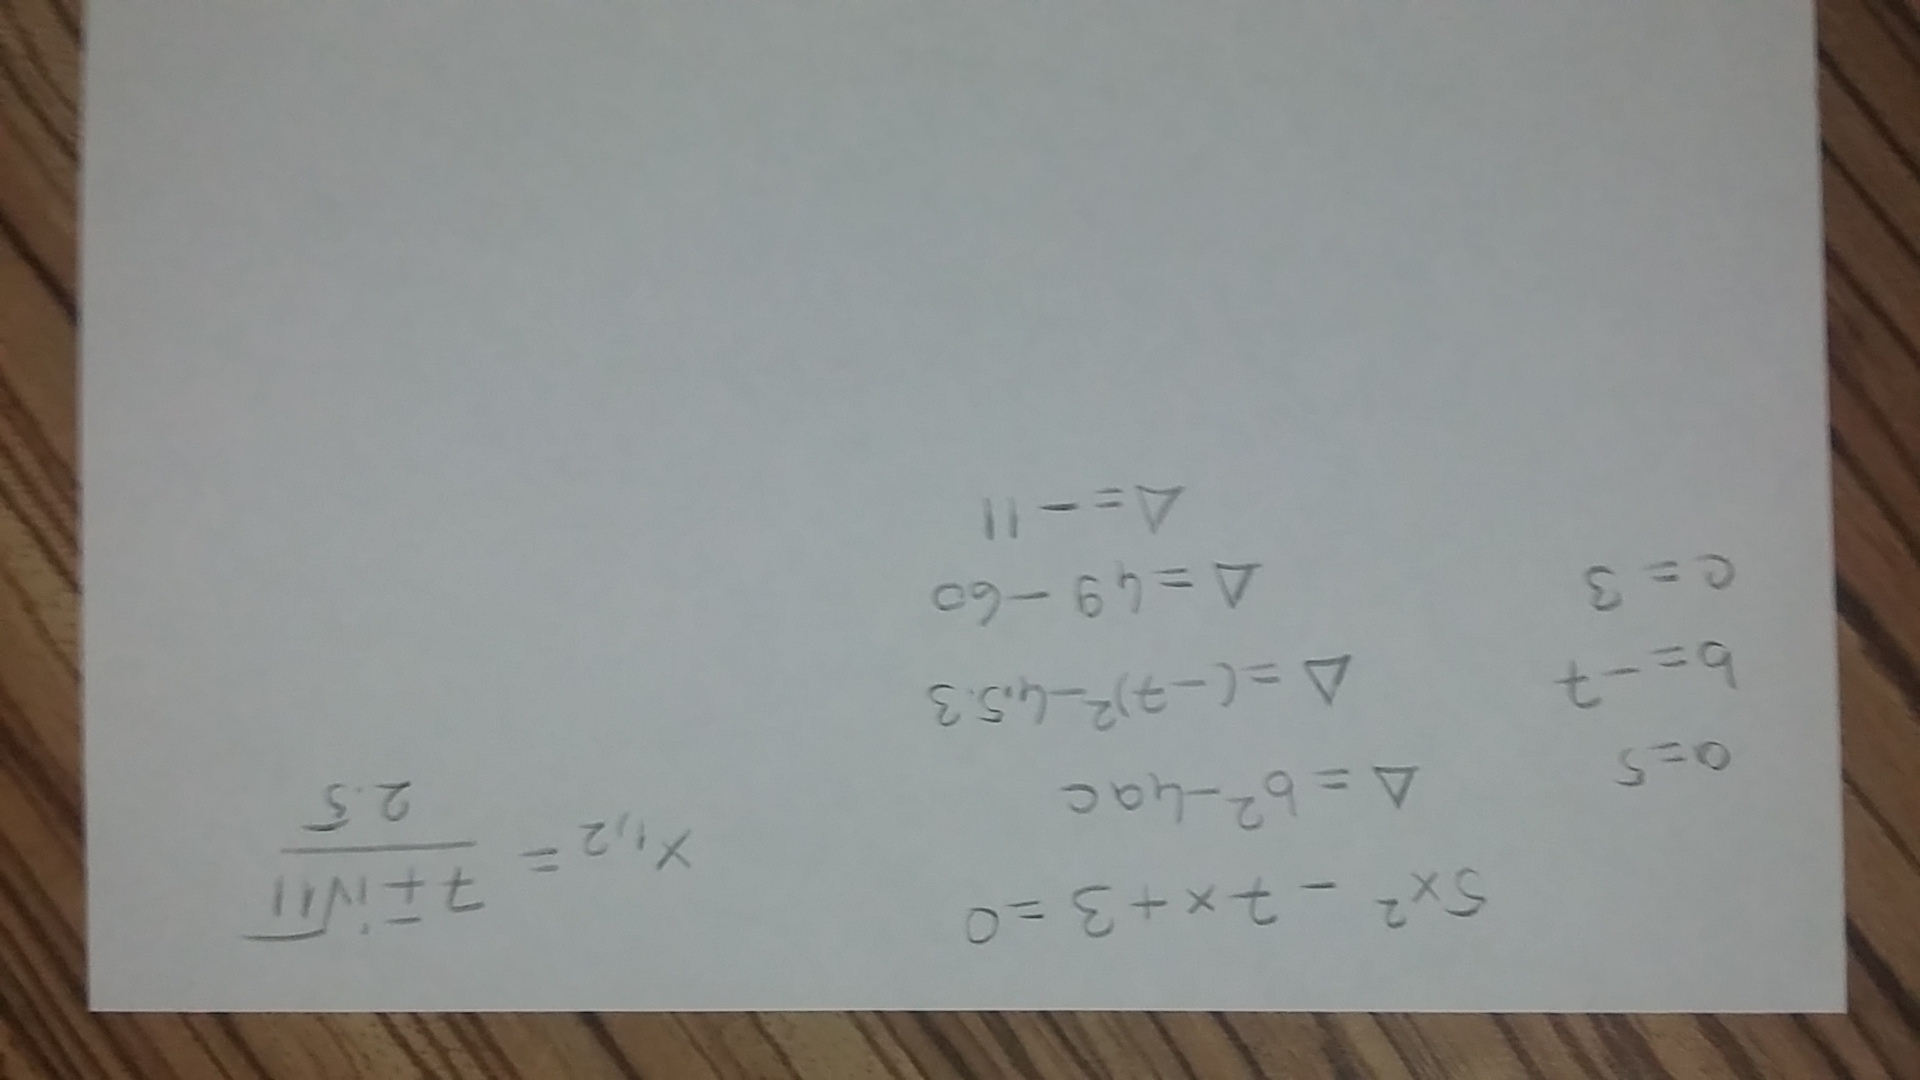 5x² - 7x + 3 = 0
a = 5
b = -7
c = 3
Δ = b² - 4ac
Δ = (-7)² - 4.5.3
Δ = 49 - 60
Δ = - 11
x₁,₂ = (7 ± i√11) / (2.5)